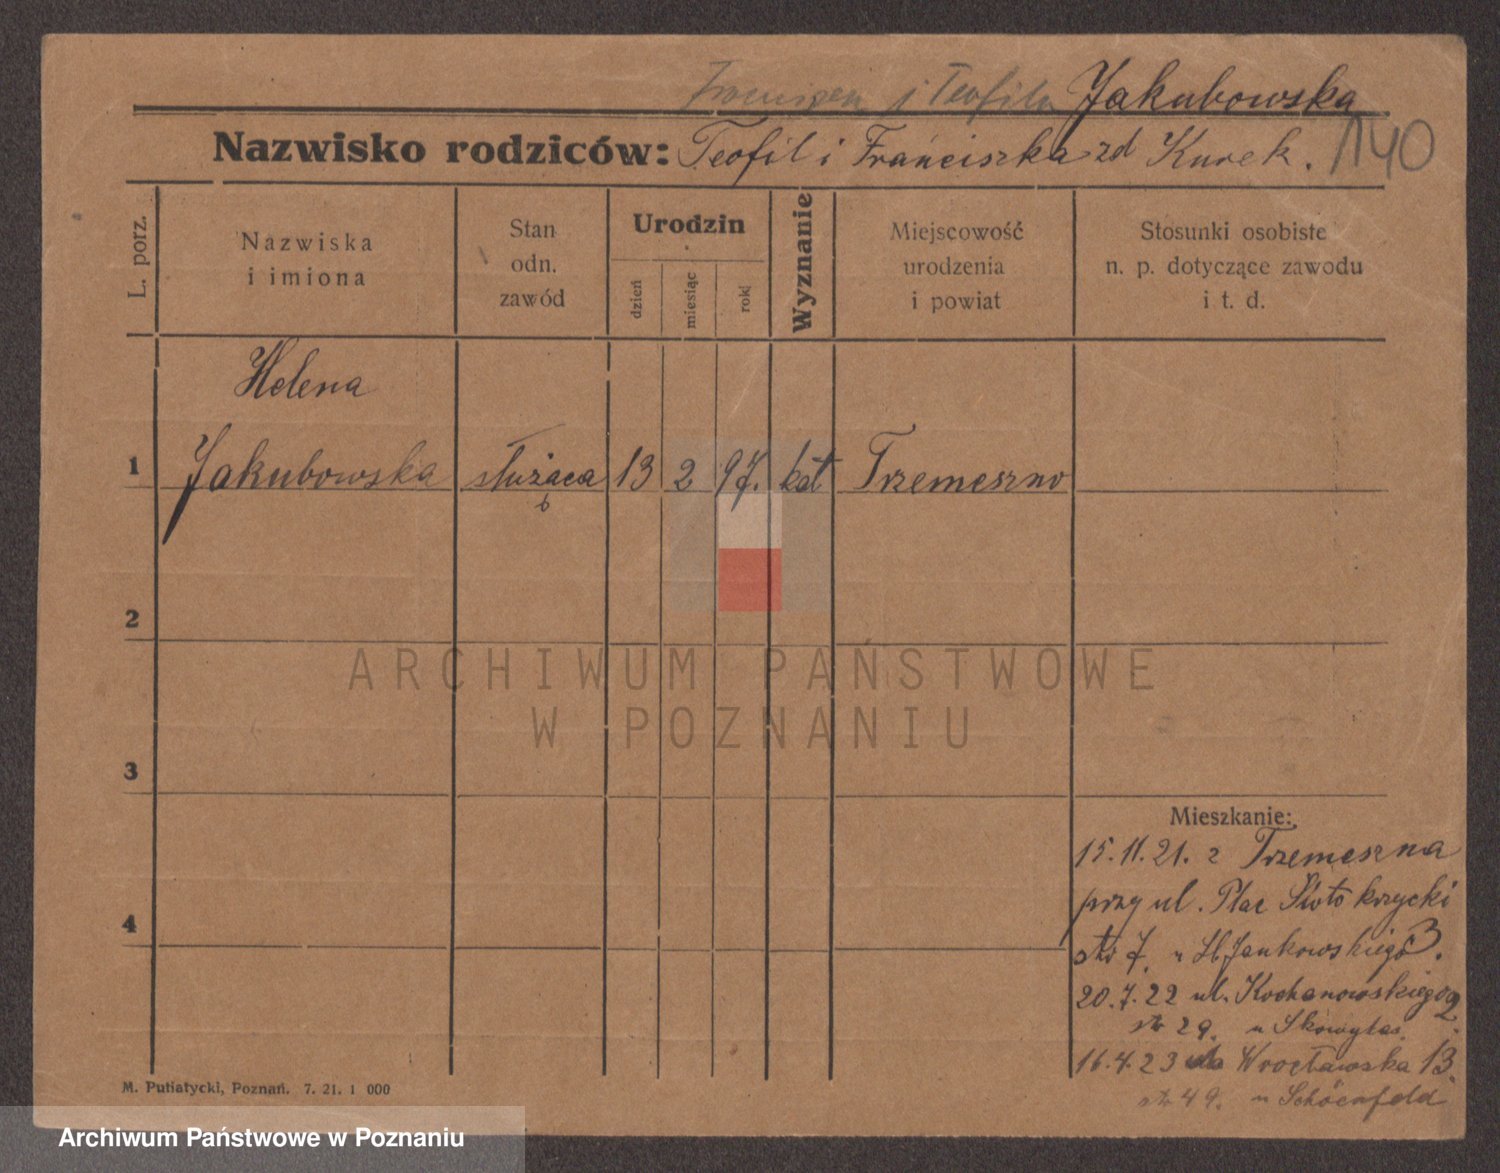 Jakubowska
Nazwisko rodziców: Teofil i Franciszka zd Kurek.
140
L. porz.
Nazwiska
i imiona
Stan
odn.
zawód
Urodzin
dzień
miesiąc
rok
Wyznanie
Miejscowość
urodzenia
i powiat
Stosunki osobiste
n. p. dotyczące zawodu
i t. d.
Helena
1 Jakubowska służąca 13 2 97. kat Trzemeszno
2
ARCHIWUM PAŃSTWOWE
W POZNANIU
3
Mieszkanie:
15.11.21. z Trzemeszna
przy ul. Plac
4
str 7. u Jankowskiego 3.
20.7.22 ul. Kochanowskiego 2
str 29. u
16.4.23 Wrocławska 13.
str 49. u Schöenfeld
M. Putiatycki, Poznań. 7. 21. 1 000
Archiwum Państwowe w Poznaniu